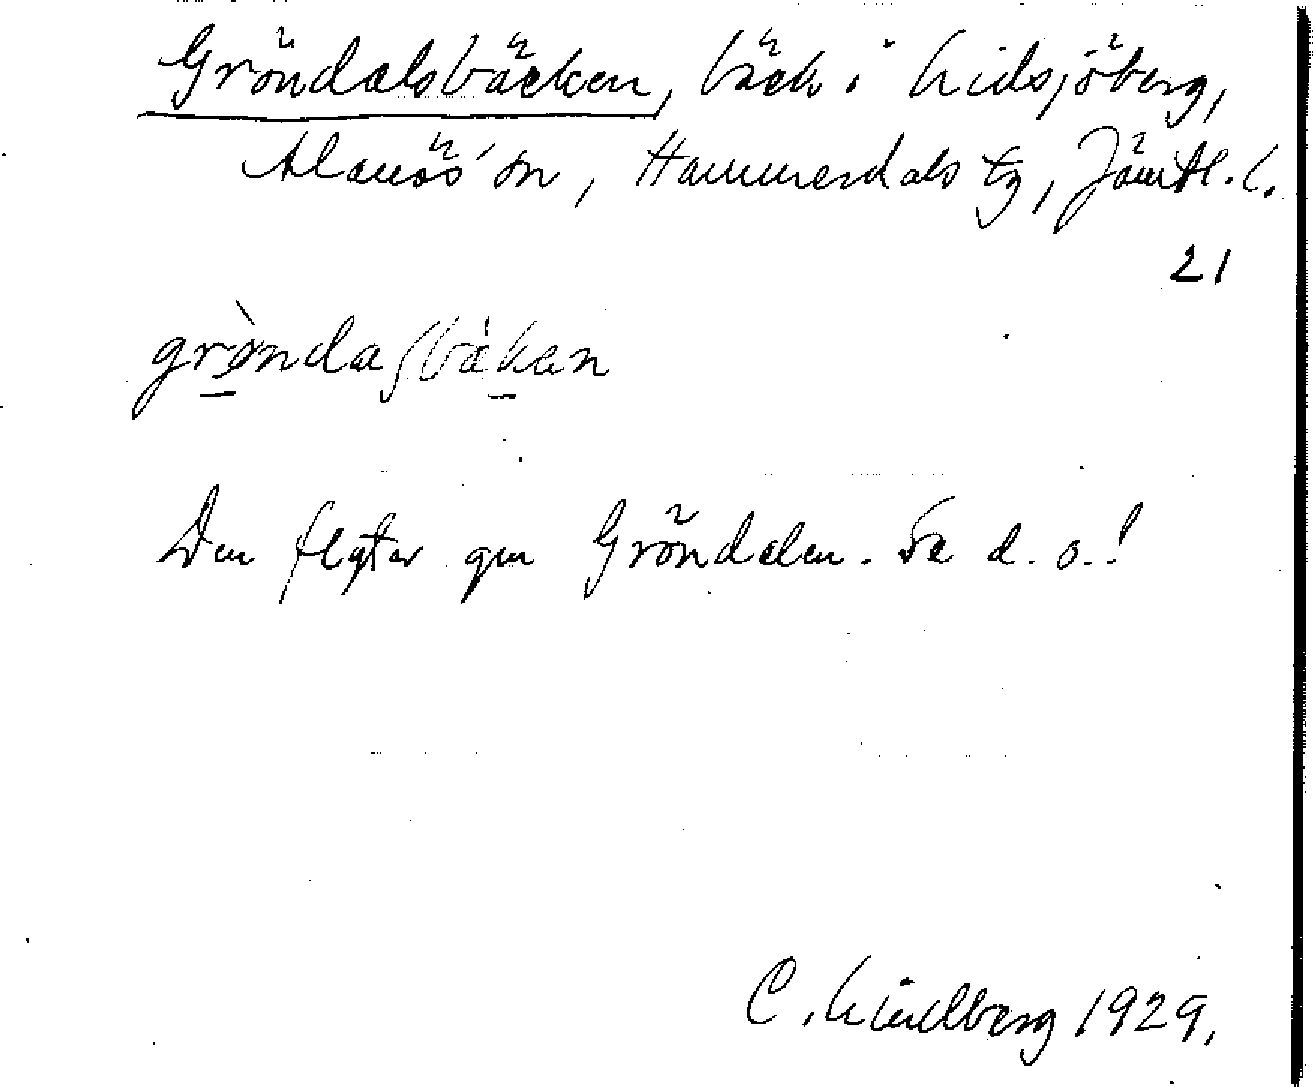 Gröndalsbäcken, bäck i Lidsjöberg,
Alanäs sn, Hammerdals tg, Jämtl. l.
21
grøndasbäkan
Den flyter gm Gröndalen. Se d. o.!
C. Lindberg 1929.